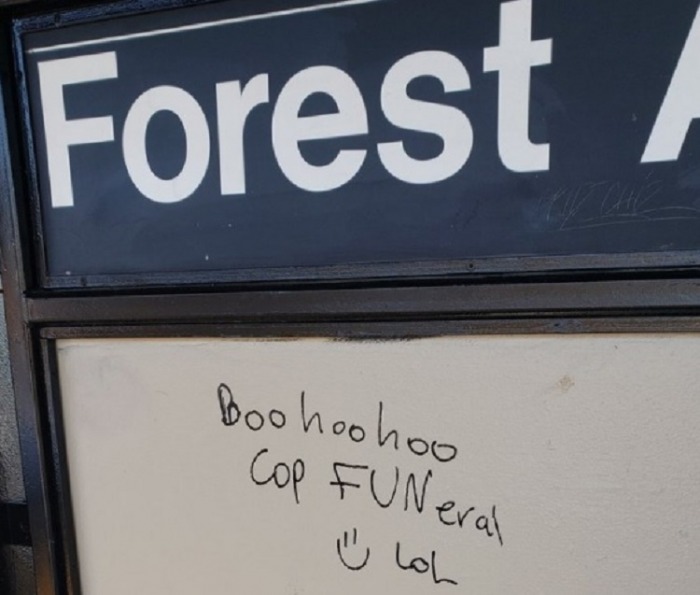 Forest A
Boohoohoo
Cop FUNeral
LoL